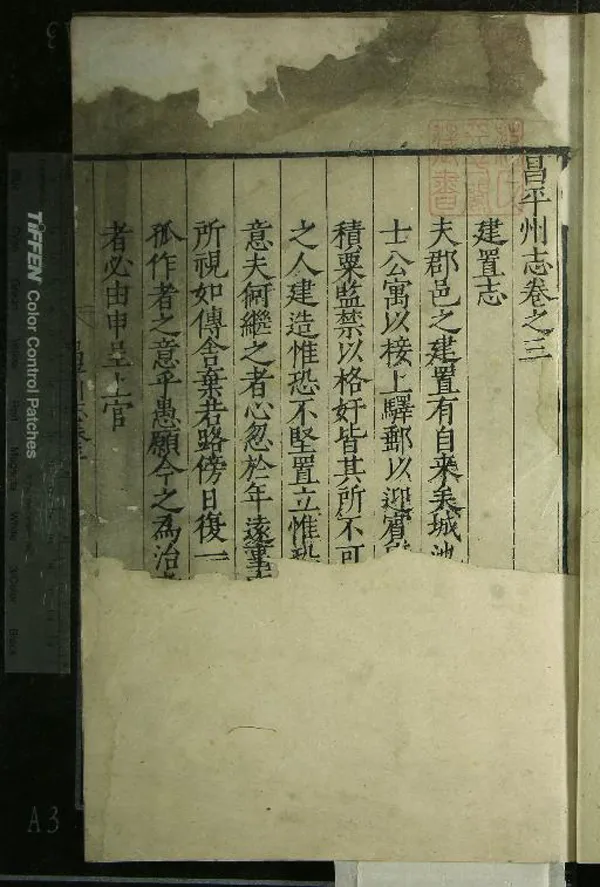 昌平州志卷之三
建置志
夫郡邑之建置有自來矣城池
士公寓以接上驛郵以迎賓
積粟監禁以格奸皆其所不可
之人建造惟恐不堅置立惟恐
意夫何繼之者心忽於年遠事
所視如傳舍棄若路傍日復一
孤作者之意乎愚願今之為治
者必由申呈上官
TIFFEN Color Control Patches
A3